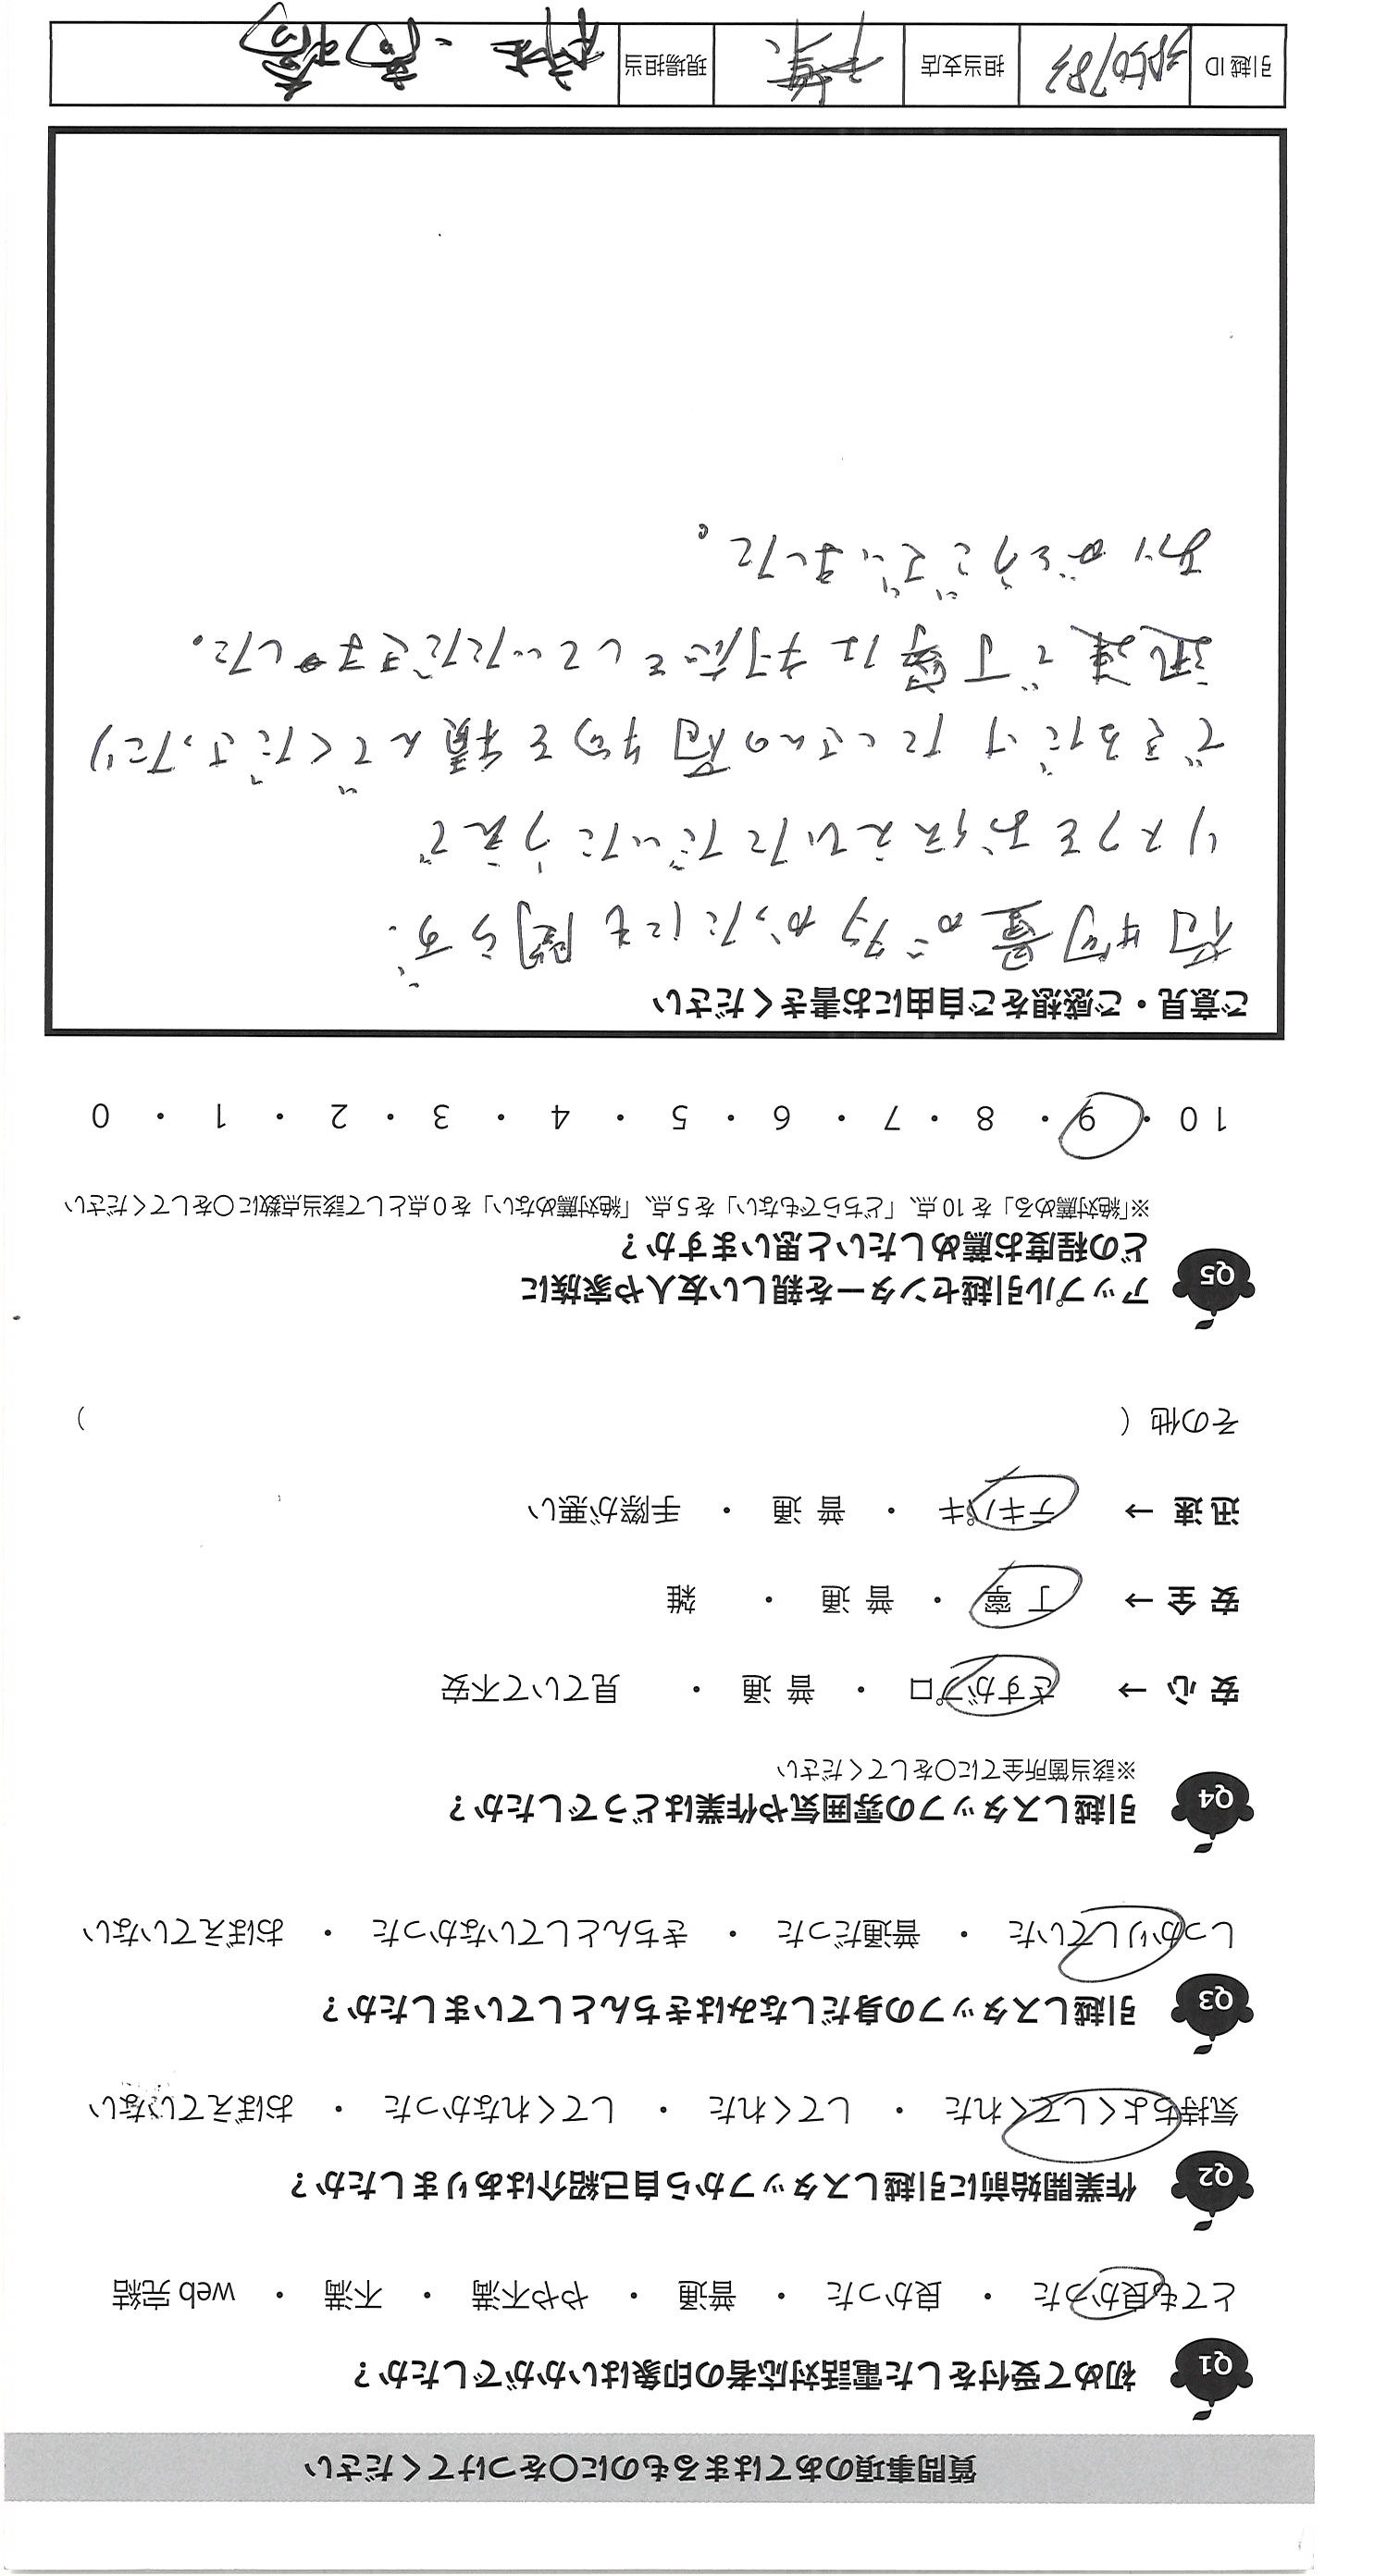 質問事項のあてはまるものに〇をつけてください
Q1 初めて受付をした電話対応者の印象はいかがでしたか？
とても良かった ・ 良かった ・ 普通 ・ やや不満 ・ 不満 ・ web 完結
Q2 作業開始前に引越しスタッフから自己紹介はありましたか？
気持ちよくしてくれた ・ してくれた ・ してくれなかった ・ おぼえていない
Q3 引越しスタッフの身だしなみはきちんとしていましたか？
しっかりしていた ・ 普通だった ・ きちんとしていなかった ・ おぼえていない
Q4 引越しスタッフの雰囲気や作業はどうでしたか？
※該当箇所全てに〇をしてください
安 心 → さすがプロ ・ 普 通 ・ 見ていて不安
安 全 → 丁 寧 ・ 普 通 ・ 雑
迅 速 → テキパキ ・ 普 通 ・ 手際が悪い
その他（ ）
Q5 アップル引越センターを親しい友人や家族に
どの程度お薦めしたいと思いますか？
※「絶対薦める」を 10 点、「どちらでもない」を 5 点、「絶対薦めない」を 0 点として該当点数に〇をしてください
10 ・ 9 ・ 8 ・ 7 ・ 6 ・ 5 ・ 4 ・ 3 ・ 2 ・ 1 ・ 0
ご意見・ご感想をご自由にお書きください
荷物量が多かったにも関らず、
リスクをお伝えいただいたうえで
できるだけたくさんの荷物を積んでくださったり
迅速で丁寧な対応をしていただきました。
ありがとうございました。
引越 ID 担当支店 千葉 現場担当 ・高橋